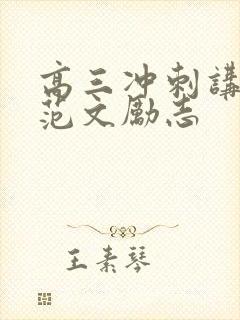 高三冲刺講
范文勵志
王素琴